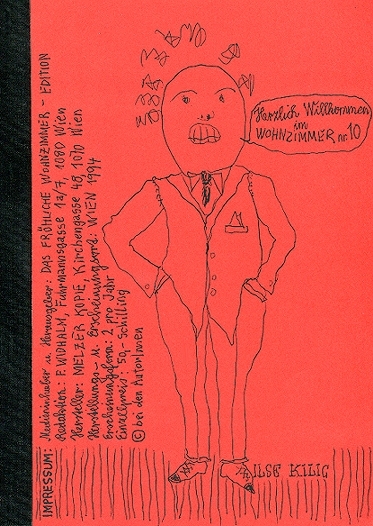 Herzlich Willkommen
im
WOHNZIMMER nr. 10
IMPRESSUM: Medieninhaber u. Herausgeber: DAS FRÖHLICHE WOHNZIMMER - EDITION
Redaktion: F. WIDHALM, Fuhrmannsgasse 1a/7, 1080 Wien
Hersteller: MELZER KOPIE, Kirchengasse 48, 1070 Wien
Herstellungs- u. Erscheinungsort: WIEN 1994
Erscheinungsform: 2 pro Jahr
Einzelpreis: 50,- Schilling
© bei den AutorInnen
ILSE KILIC